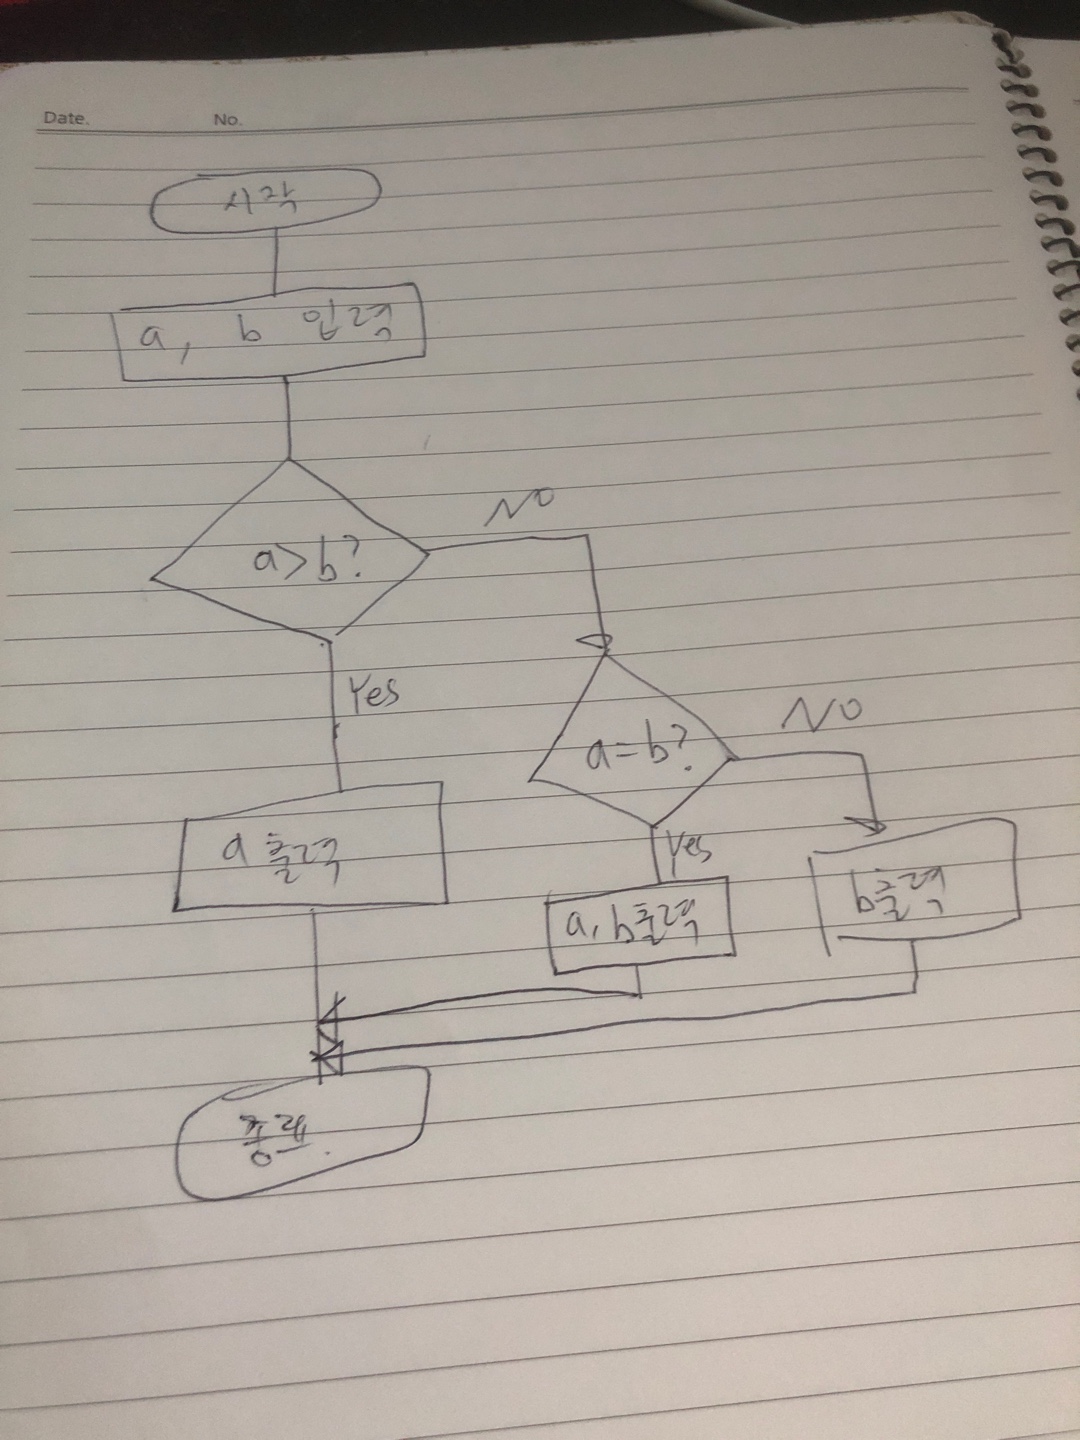 Date. No.
시작
a, b 입력
a>b?
NO
Yes
a=b?
NO
Yes
a 출력
a, b출력
b출력
종료.